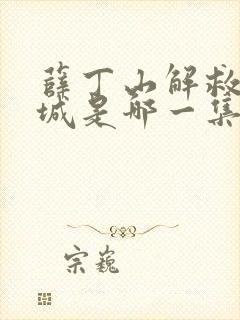 薛丁山解救
城是哪一集
宗巍